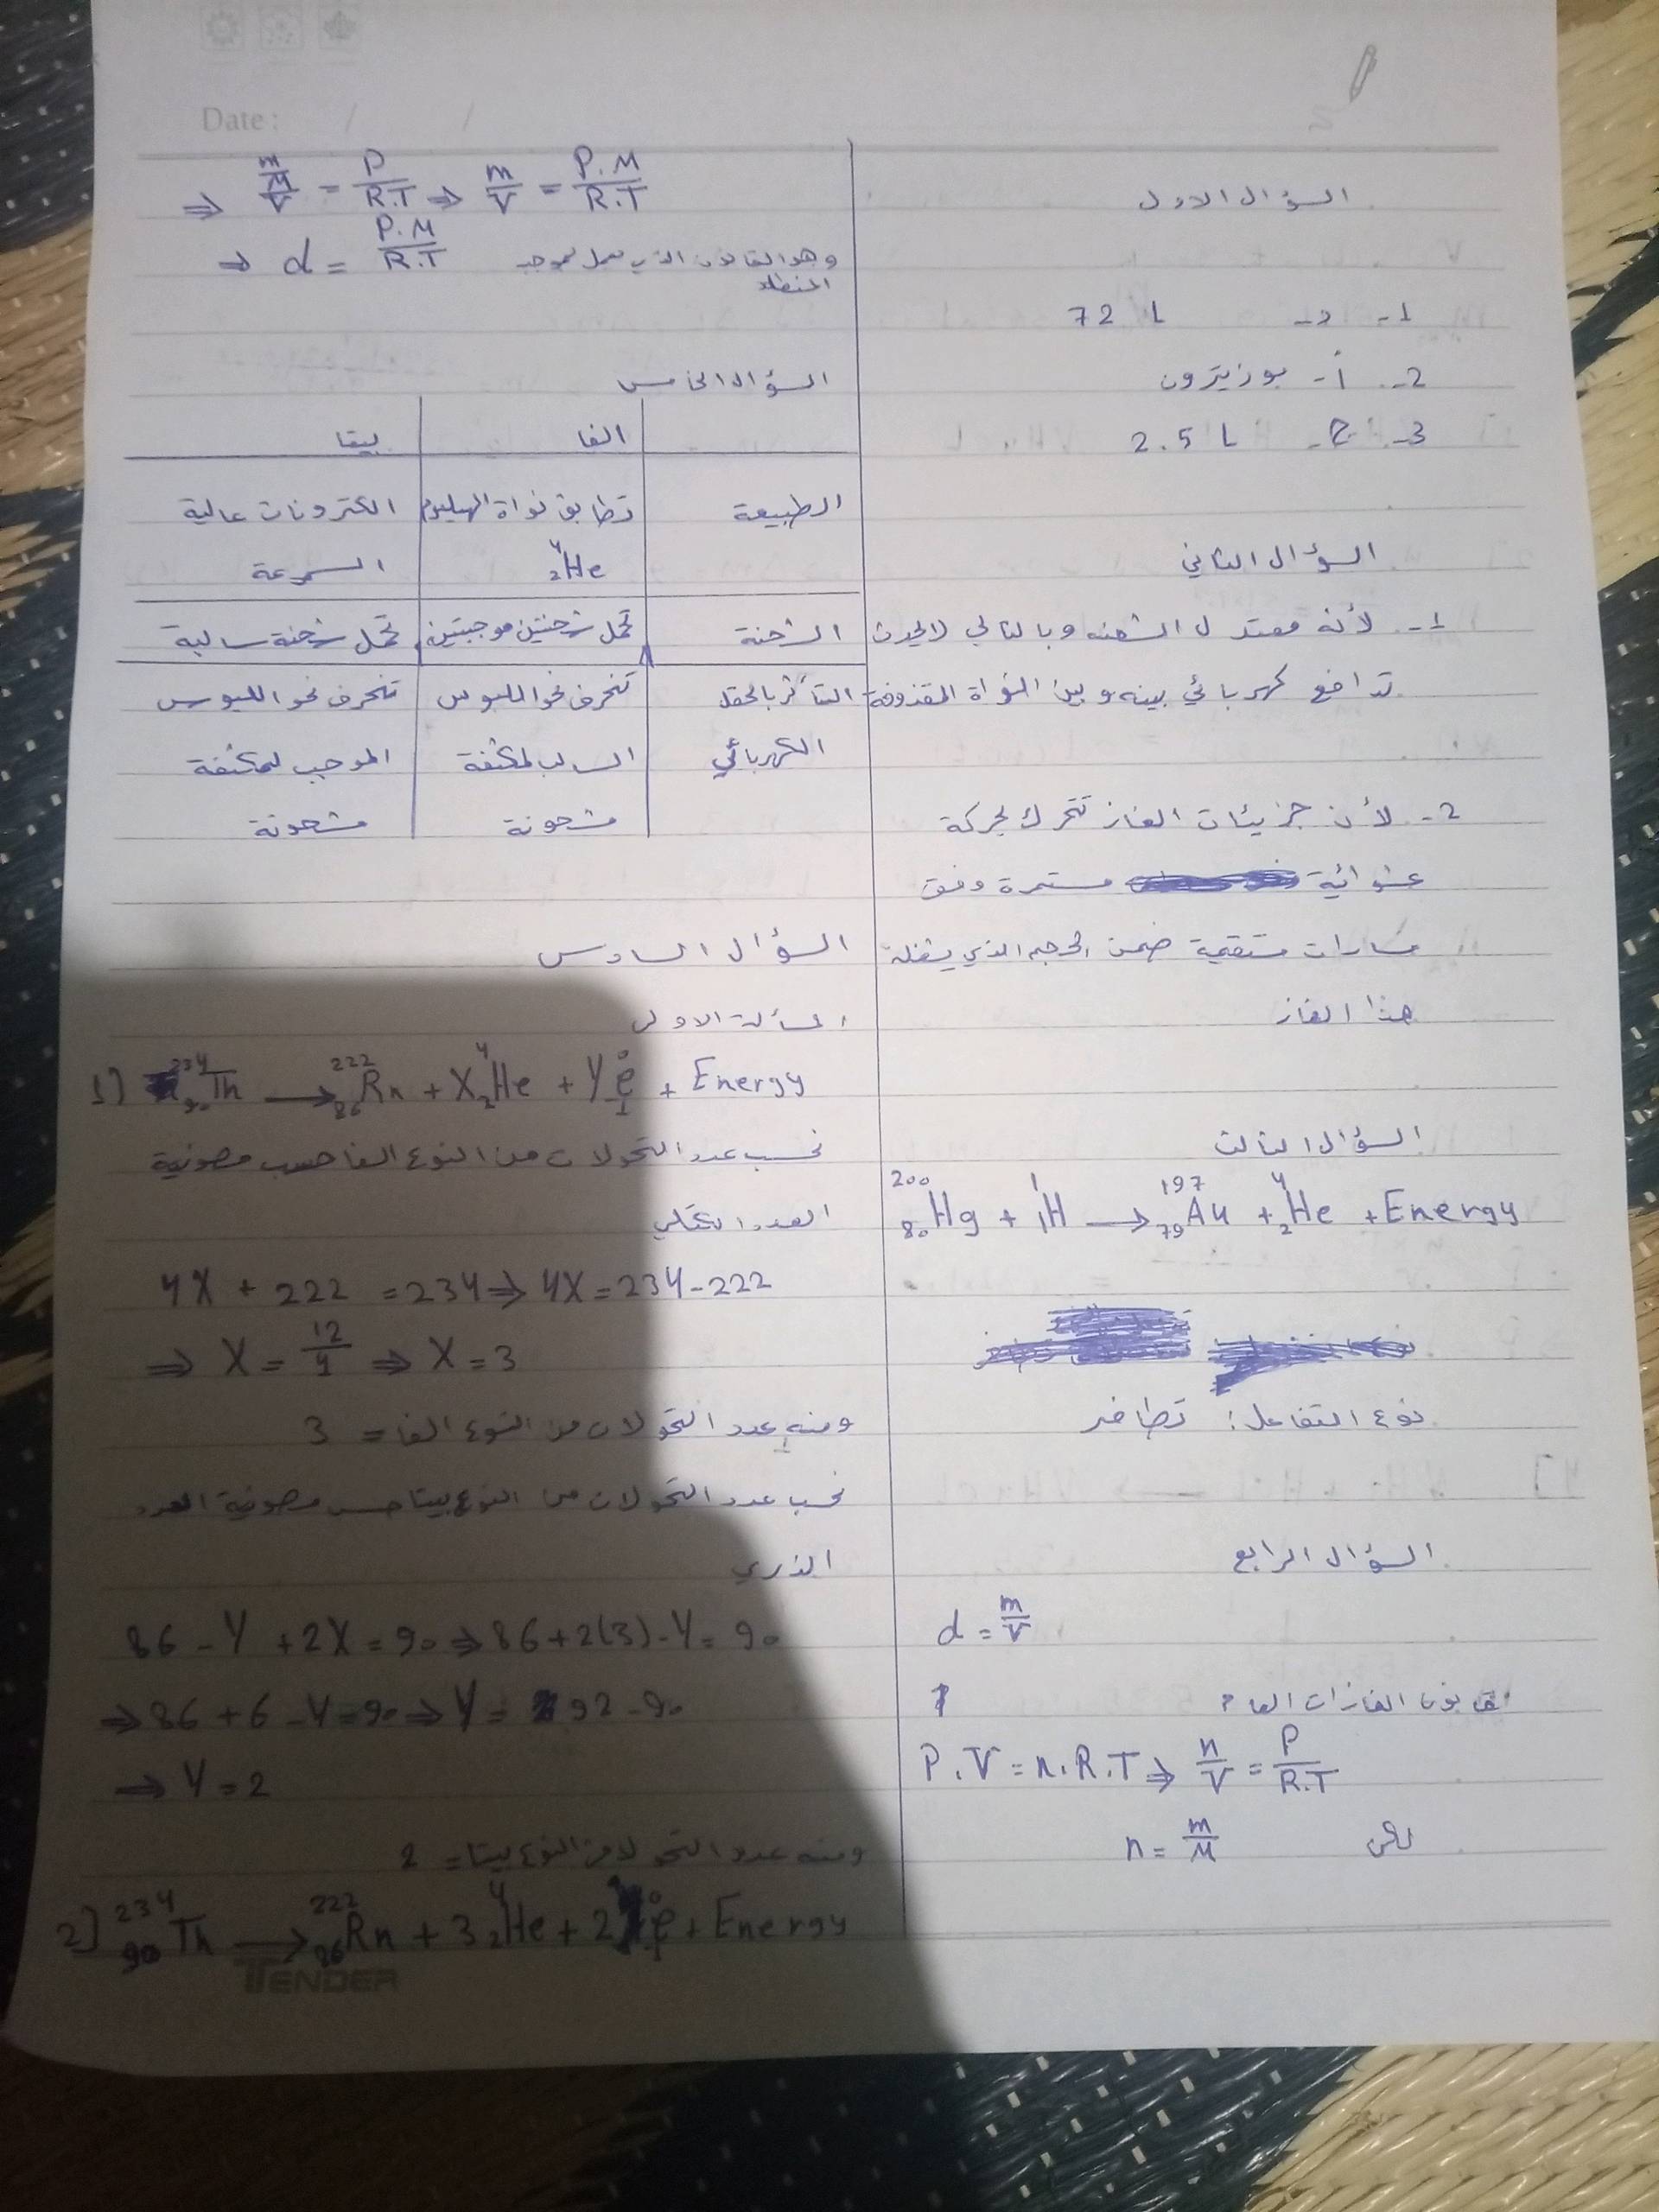 Date: / /
السؤال الاول
1- د- 72 L
2- أ- بوزيترون
3- C- 2.5 L
السؤال الثاني
1- لأنه معتدل الشحنه وبالتالي لايحدث
تدافع كهربائي بينه وبين النواة المقذوفة
2- لأن جزيئات الغاز تتحرك بحركة
عشوائية مستمرة وفق
مسارات مستقيمة ضمن الحجم الذي يشغله
هذا الغاز
السؤال الثالث
²⁰⁰₈₀Hg + ¹₁H → ¹⁹⁷₇₉Au + ⁴₂He + Energy
نوع التفاعل: تطافر
السؤال الرابع
d = m/V
قانون الغازات العام
P.V = n.R.T ⇒ n/V = P/R.T
لكن n = m/M
⇒ (m/M)/V = P/R.T ⇒ m/V = P.M/R.T
⇒ d = P.M/R.T وهو القانون الذي تعمل بموجبه
المنطاد
السؤال الخامس
الفا بيتا
الطبيعة تطابق نواة الهيليوم الكترونات عالية
⁴₂He السرعة
الشحنة تحمل شحنتين موجبتين تحمل شحنة سالبة
التأثر بالحقل تنحرف نحو اللبوس تنحرف نحو اللبوس
الكهربائي السالب لمكثفة الموجب لمكثفة
مشحونة مشحونة
السؤال السادس
المسألة الاولى
1) ²³⁴₉₀Th → ²²²₈₆Rn + X⁴₂He + Y⁰₋₁e + Energy
نحسب عدد التحولات من النوع الفا حسب مصونية
العدد الكتلي
4X + 222 = 234 ⇒ 4X = 234 - 222
⇒ X = 12/4 ⇒ X = 3
ومنه عدد التحولات من النوع الفا = 3
نحسب عدد التحولات من النوع بيتا حسب مصونية العدد
الذري
86 - Y + 2X = 90 ⇒ 86 + 2(3) - Y = 90
⇒ 86 + 6 - Y = 90 ⇒ Y = 92 - 90
⇒ Y = 2
ومنه عدد التحولا من النوع بيتا = 2
2) ²³⁴₉₀Th → ²²²₈₆Rn + 3⁴₂He + 2⁰₋₁e + Energy
TENDER